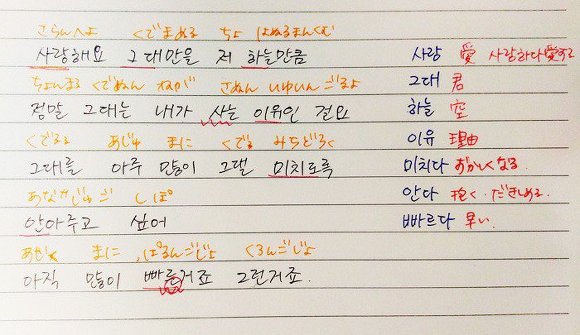 さらんへよ くでまぬる ちょ はぬるまんくむ
사랑해요 그대만을 저 하늘만큼 사랑 愛 사랑하다 愛する
ちょんまる くでぬん ねが さぬん いゆいん ごるよ 그대 君
정말 그대는 내가 사는 이유인 걸요 하늘 空
くでるる あじゅ まに くでる みちどろく 이유 理由
그대를 아주 많이 그댈 미치도록 미치다 おかしくなる
あなじゅご しぽ 안다 抱く・だきしめる
안아주고 싶어 빠르다 早い
あじく まに ぱるんごじょ くろんごじょ
아직 많이 빠른거죠 그런거죠.